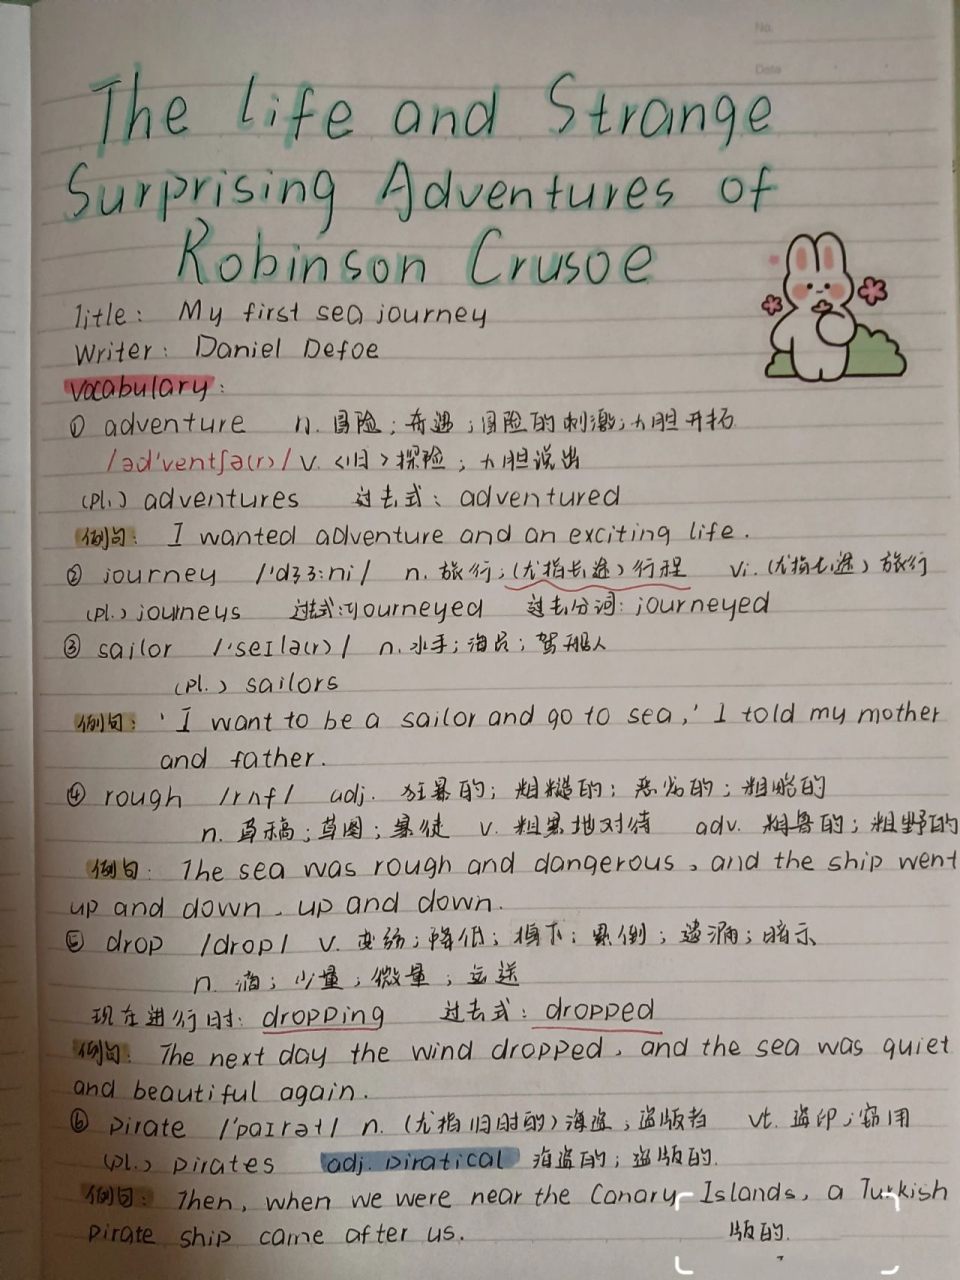 No.
Date
The life and Strange
Surprising Adventures of
Robinson Crusoe
Title: My first sea journey
Writer: Daniel Defoe
vocabulary:
① adventure n. 冒险;奇遇;冒险的刺激;大胆开拓
/əd'ventʃə(r)/ v.<旧>探险;大胆说出
(pl.) adventures 过去式: adventured
例句: I wanted adventure and an exciting life.
② journey /'dʒɜːni/ n. 旅行;(尤指长途)行程 vi.(尤指长途)旅行
(pl.) journeys 过去式: journeyed 过去分词: journeyed
③ sailor /'seɪlə(r)/ n.水手;海员;驾船人
(pl.) sailors
例句: 'I want to be a sailor and go to sea,' I told my mother
and father.
④ rough /rʌf/ adj. 狂暴的;粗糙的;恶劣的;粗略的
n. 草稿;草图;暴徒 v. 粗暴地对待 adv. 粗鲁的;粗野的
例句: The sea was rough and dangerous, and the ship went
up and down, up and down.
⑤ drop /drop/ v. 变弱;降低;掉下;累倒;遗漏;暗示
n. 滴;少量;微量;空送
现在进行时: dropping 过去式: dropped
例句: The next day the wind dropped, and the sea was quiet
and beautiful again.
⑥ pirate /'paɪrət/ n. (尤指旧时的)海盗;盗版者 vt. 盗印;窃用
(pl.) pirates adj. piratical 海盗的;盗版的.
例句: Then, when we were near the Canary Islands, a Turkish
pirate ship came after us. 版的.